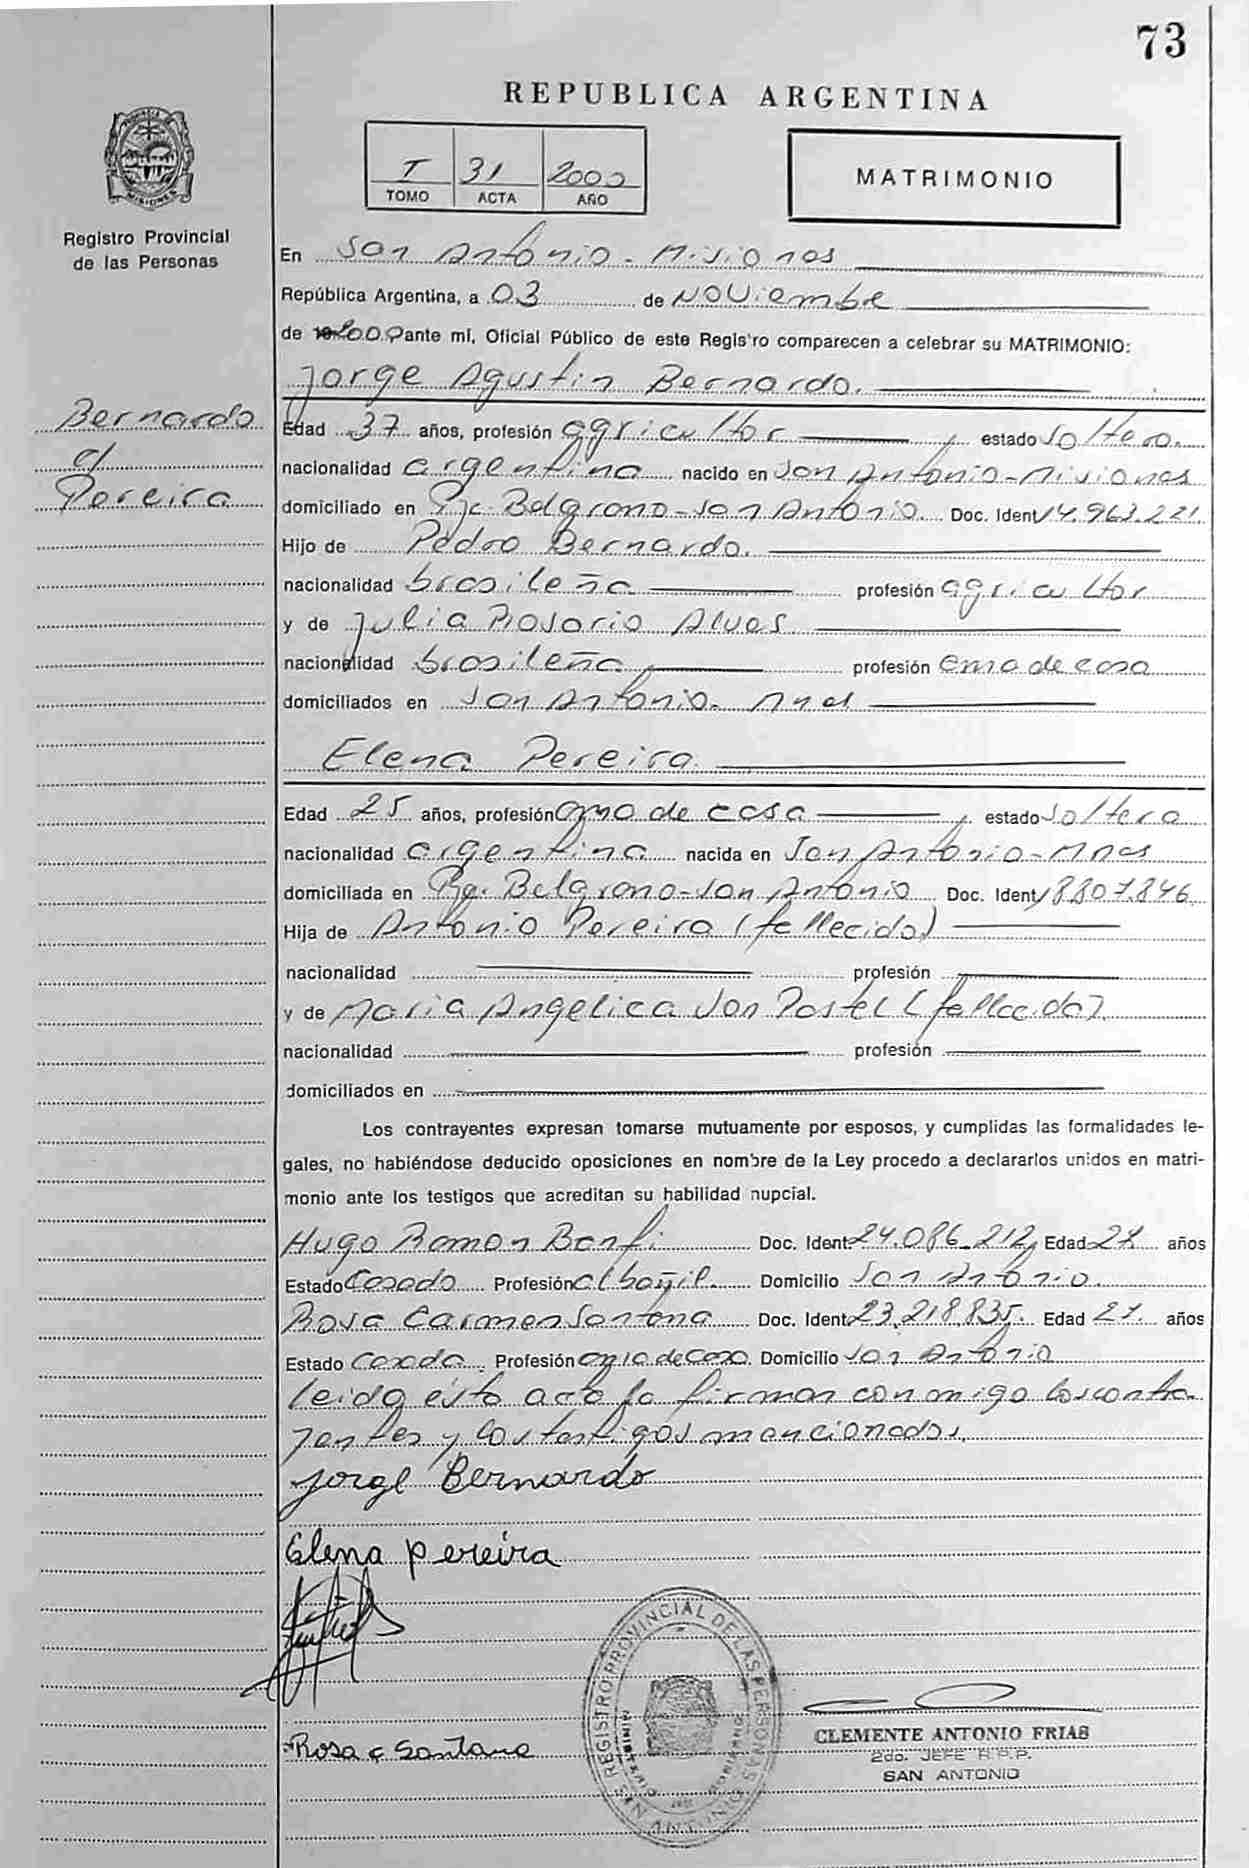 73
REPUBLICA ARGENTINA
T 31 2000
TOMO ACTA AÑO
MATRIMONIO
Registro Provincial
de las Personas
En San Antonio - Misiones
República Argentina, a 03 de Noviembre
de 2000 ante mí, Oficial Público de este Registro comparecen a celebrar su MATRIMONIO:
Jorge Agustin Bernardo.
Bernardo
c/
Pereira
Edad 37 años, profesión agricultor, estado soltero.
nacionalidad argentina nacido en San Antonio-Misiones
domiciliado en Pje. Belgrano-San Antonio. Doc. Ident. 14.963.221.
Hijo de Pedro Bernardo.
nacionalidad brasileña profesión agricultor
y de Julia Rosario Alves
nacionalidad brasileña profesión ama de casa
domiciliados en San Antonio. Mnes
Elena Pereira
Edad 25 años, profesión ama de casa, estado soltera
nacionalidad argentina nacida en San Antonio-Mnes
domiciliada en Pje. Belgrano-San Antonio Doc. Ident. 18.807.846.
Hija de Antonio Pereira (fallecido)
nacionalidad profesión
y de Maria Angelica San Pastel (fallecida).
nacionalidad profesión
domiciliados en
Los contrayentes expresan tomarse mutuamente por esposos, y cumplidas las formalidades le-
gales, no habiéndose deducido oposiciones en nombre de la Ley procedo a declararlos unidos en matri-
monio ante los testigos que acreditan su habilidad nupcial.
Hugo Ramon Banfi Doc. Ident. 24.086.212, Edad 27 años
Estado Casado Profesión albañil. Domicilio San Antonio.
Rosa Carmen Santana Doc. Ident. 23.218.835. Edad 27. años
Estado Casada Profesión ama de casa. Domicilio San Antonio
leida ésta acta la firman conmigo los contra-
yentes y los testigos mencionados.
Jorge Bernardo
Elena pereira
Rosa C Santana
REGISTRO PROVINCIAL DE LAS PERSONAS
MINISTERIO GOBIERNO
SAN ANTONIO
CLEMENTE ANTONIO FRIAS
2do. JEFE R.P.P.
SAN ANTONIO